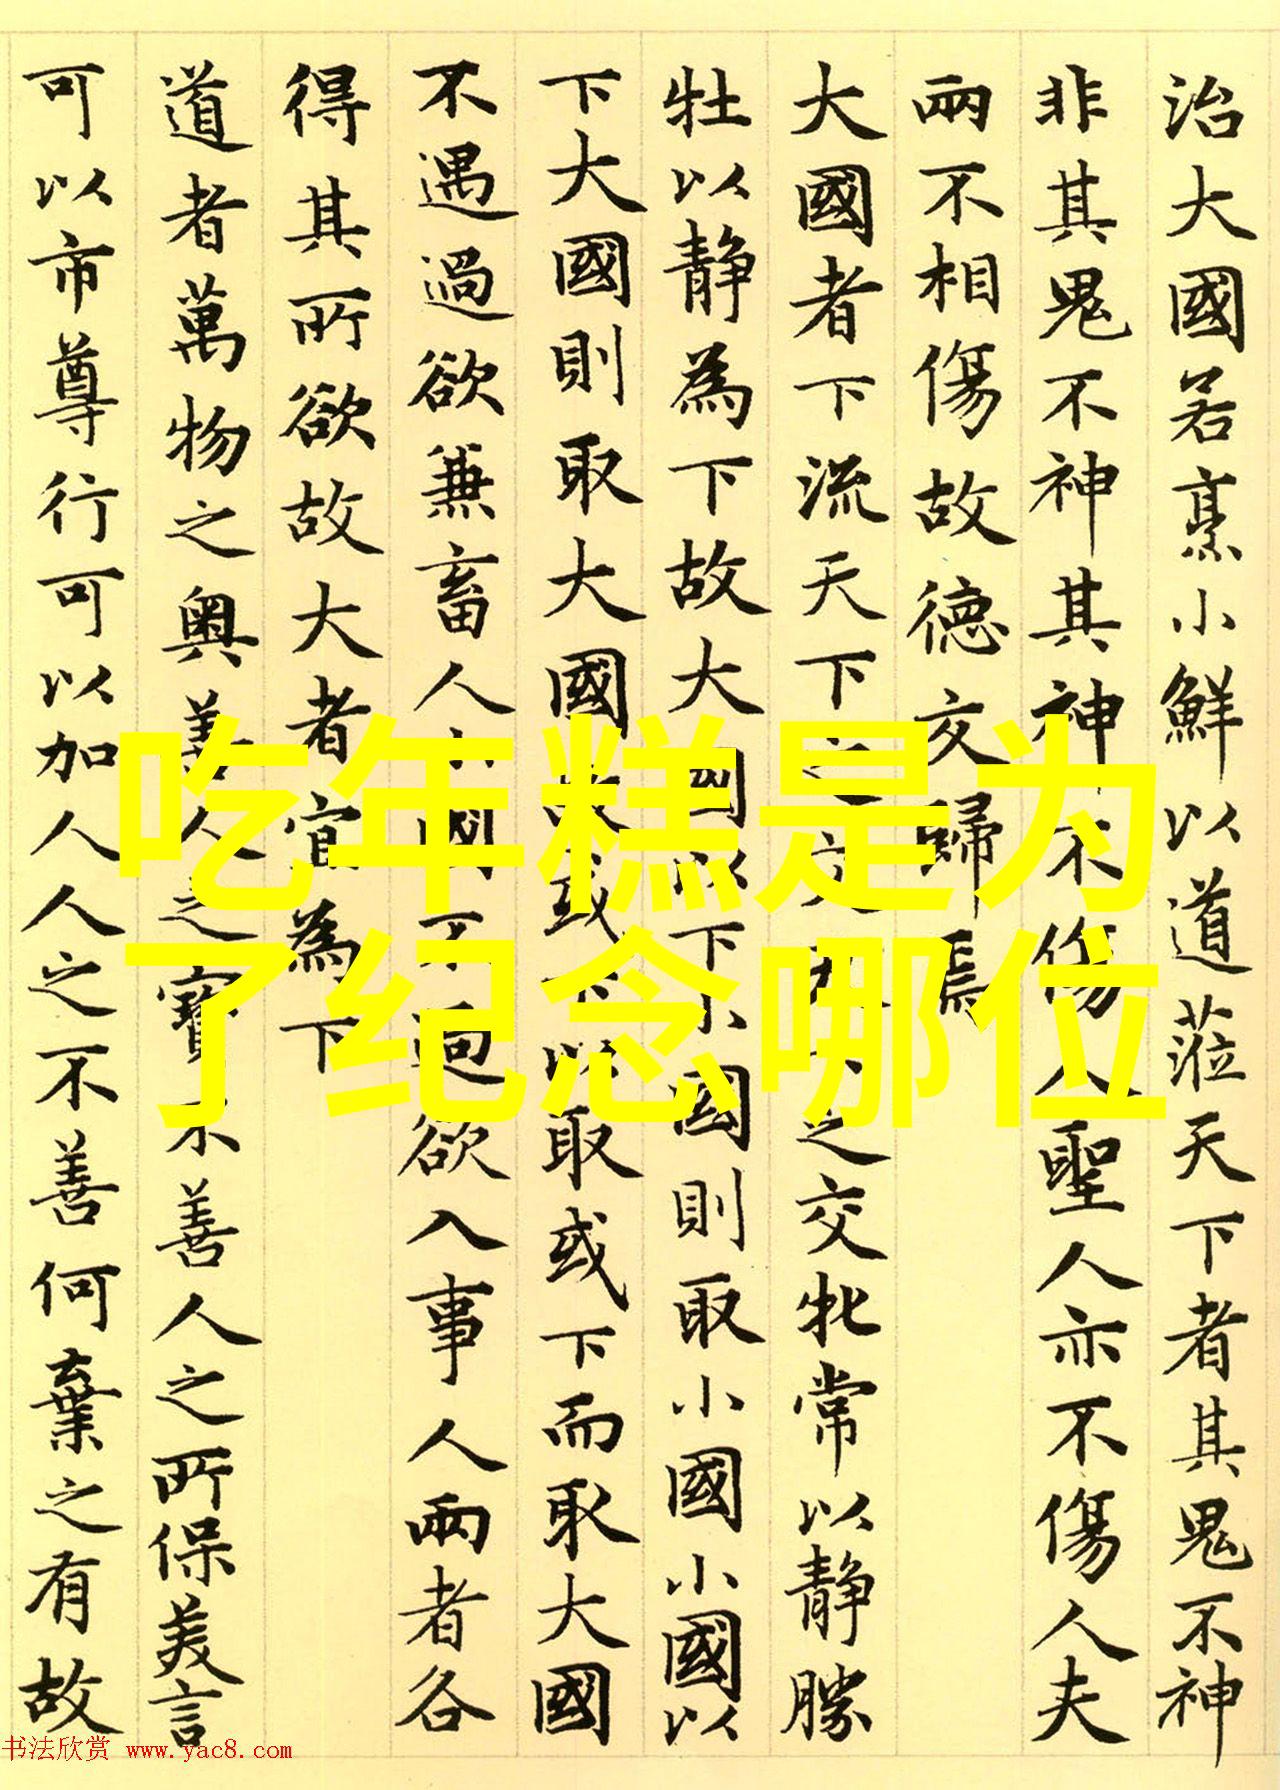 治大國若烹小鮮以道蒞天下者其鬼不神
非其鬼不神其神不傷人聖人亦不傷人夫
兩不相傷故德交歸焉
大國者下流天下之交天下之交牝常以靜勝
牡以靜為下故大國以下小國則取小國小國以
下大國則取大國故或下以取或下而取大國
不遇過欲兼畜人小國不過欲入事人兩者各
得其所欲故大者宜為下
道者萬物之奧善人之寶不善人之所保美言
可以市尊行可以加人人之不善何棄之有故
吃年糕是为
了纪念哪位
书法欣赏 www.yac8.com